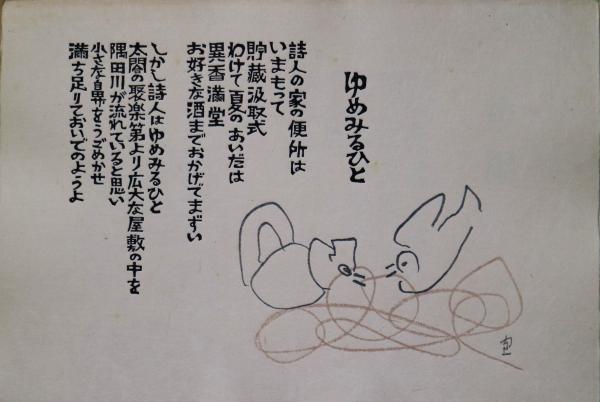 ゆめみるひと
詩人の家の便所は
いまもって
貯蔵汲取式
わけて夏のあいだは
異香満堂
お好きな酒までおかげでまずい
しかし詩人はゆめみるひと
太閤の聚楽第より広大な屋敷の中を
隅田川が流れていると思い
小さな鼻をうごめかせ
満ち足りておいでのようよ